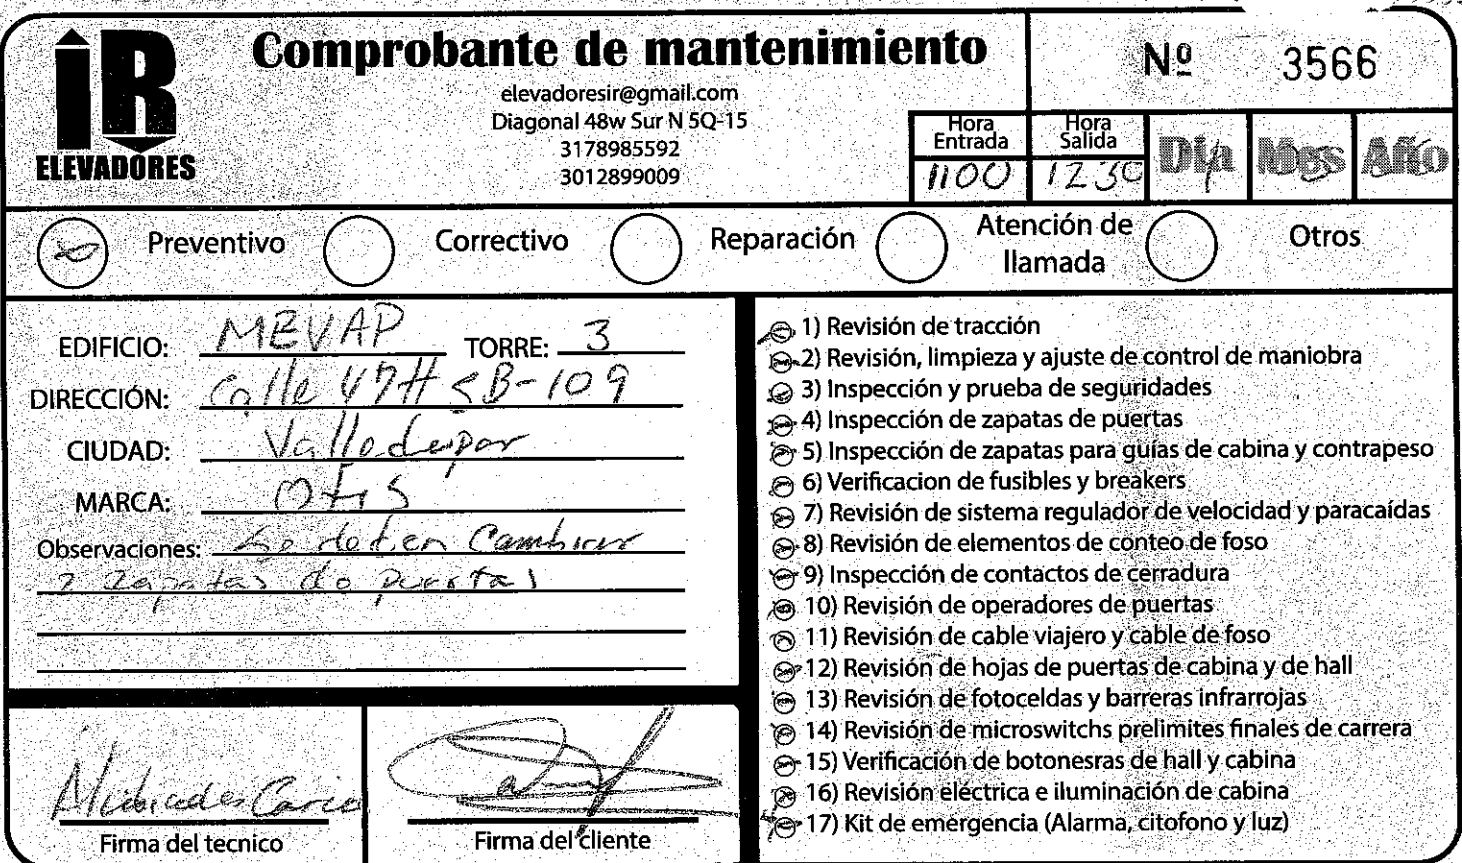 IR
ELEVADORES
Comprobante de mantenimiento
elevadoresir@gmail.com
Diagonal 48w Sur N 5Q-15
3178985592
3012899009
Nº 3566
Hora Entrada
1100
Hora Salida
1230
Día Mes Año
Preventivo Correctivo Reparación Atención de llamada Otros
EDIFICIO: MEVAP TORRE: 3
DIRECCIÓN: Calle 47# 5B-109
CIUDAD: Valledupar
MARCA: Otis
Observaciones: Se deben Cambiar
2 zapatas de puertas
Firma del tecnico
Firma del cliente
1) Revisión de tracción
2) Revisión, limpieza y ajuste de control de maniobra
3) Inspección y prueba de seguridades
4) Inspección de zapatas de puertas
5) Inspección de zapatas para guías de cabina y contrapeso
6) Verificacion de fusibles y breakers
7) Revisión de sistema regulador de velocidad y paracaídas
8) Revisión de elementos de conteo de foso
9) Inspección de contactos de cerradura
10) Revisión de operadores de puertas
11) Revisión de cable viajero y cable de foso
12) Revisión de hojas de puertas de cabina y de hall
13) Revisión de fotoceldas y barreras infrarrojas
14) Revisión de microswitchs prelimites finales de carrera
15) Verificación de botonesras de hall y cabina
16) Revisión eléctrica e iluminación de cabina
17) Kit de emergencia (Alarma, citofono y luz)